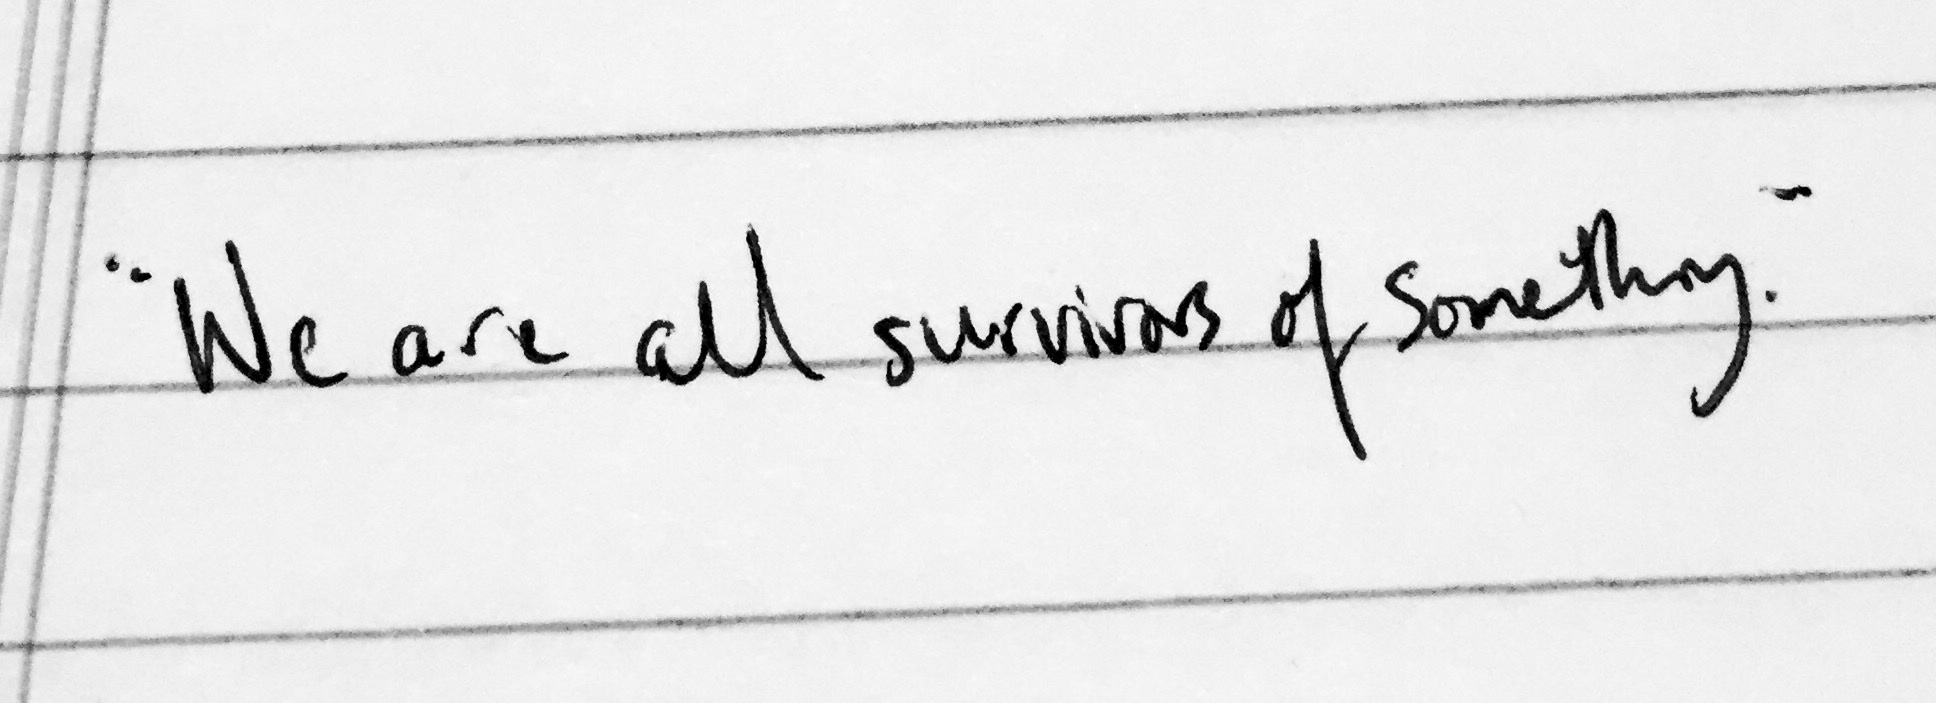 "We are all survivors of something."